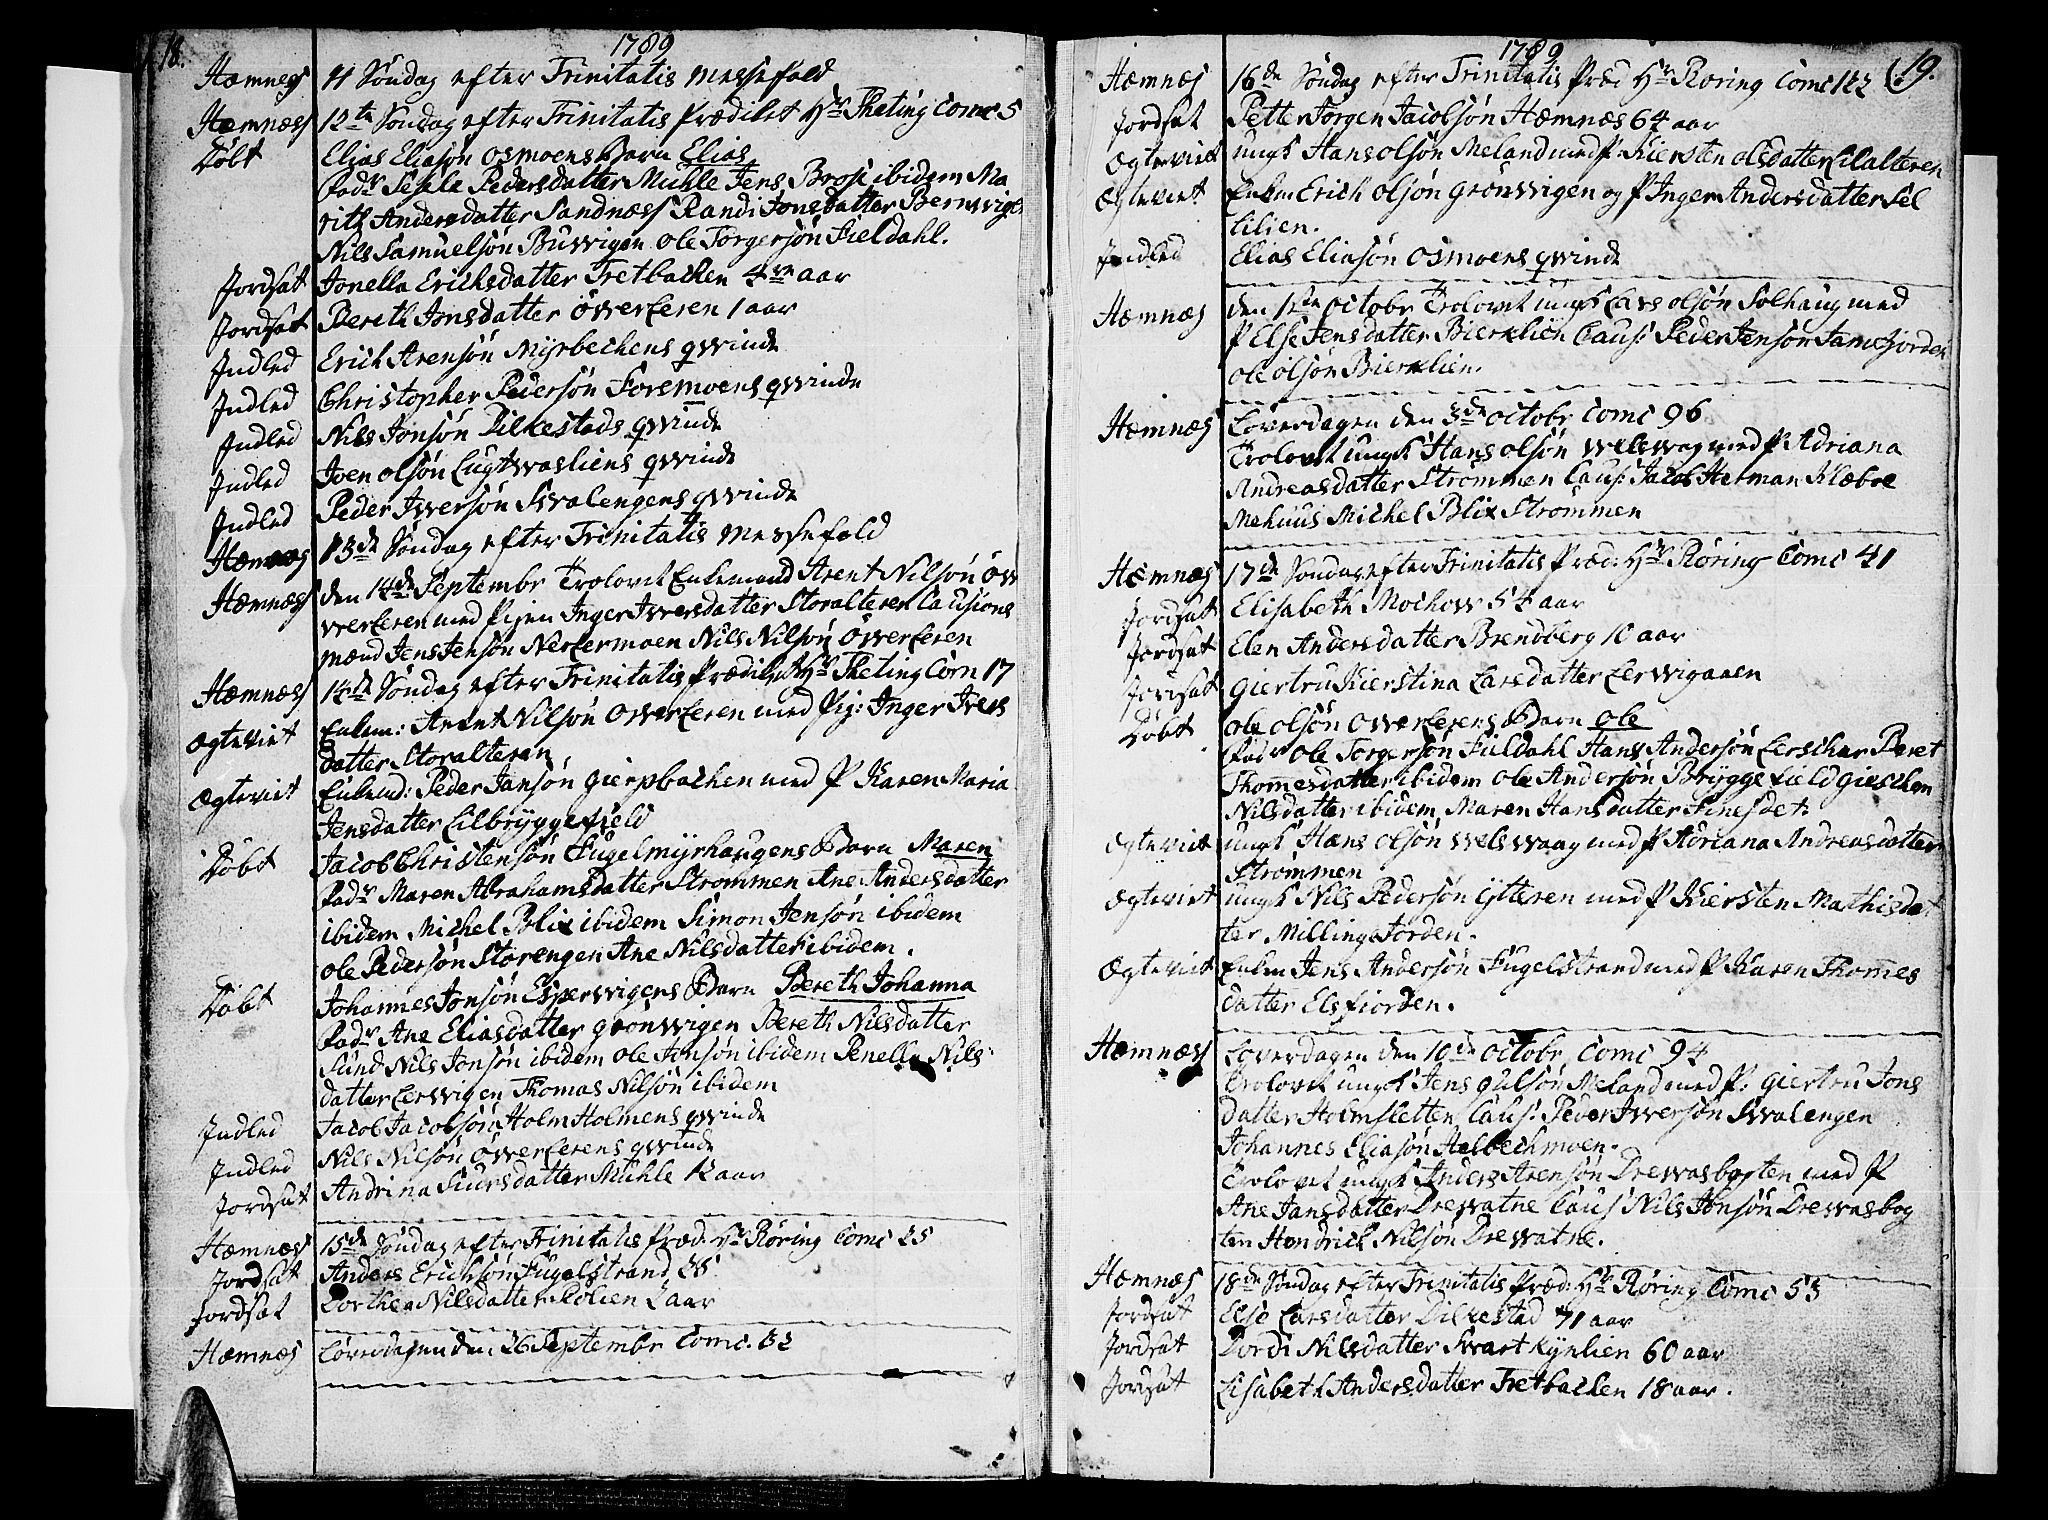 18.
1789
Hæmnes 11 Søndag efter Trinitatis Messefald
Hæmnæs 12te Søndag efter Trinitatis Prædiket Hr Theting Comc 5
Døbt Elias Eliasøn Osmoens Barn Elias
Fadr Pedersdatter Muhle Jens Brose ibidem Ma
rith Andersdatter Sandnæss Randi Jonsdatter
Nils Samuelsøn Buvvigen Ole Torgersøn Fieldahl.
Jordsat Jonella Erichsdatter Tretbacken 4 aar
Jordsat Bereth Jonsdatter Øvverleren 1 aar
Indled Erich Arensøn Myrbechens qvinde
Indled Christopher Pedersøn Foremoens qvinde
Indled Nils Jonsøn Dilkestads qvinde
Indled Joen Olsøn Lugtvvasliens qvinde
Indled Peder Ivversøn Svvalengens qvinde
Hæmnæs 13de Søndag efter Trinitatis Messefald
Hæmnæs den 14de Septembr Trolovet Enkemand Arent Nilsøn Øv
vverleren med Pigen Inger Iversdatter Storalteren Causions
mænd Jens Jensøn Nerlermoen Nils Nilsøn Øvverleren
Hæmnæs 14de Søndag efter Trinitatis Prædiket Hr Theting Com 17
Ægteviet Enkem: Arent Nilsøn Øvverleren med Pig: Inger Ivers
datter Storalteren
Ægteviet Enkmd: Peder Jansøn Gierpbachen med P Karen Maria
Jensdatter Lilbryggefield
Døbt Jacob Christensøn Fugelmyrhaugens Barn Maren
Fadr Maren Abrahamsdatter Strømmen Ane Andersdatter
ibidem Michel Blix ibidem Simon Jensøn ibidem
Ole Pedersøn Storengen Ane Nilsdatter ibidem.
Døbt Johannes Jonsøn Espervvigens Barn Bereth Johanna
Fadr Ane Eliasdatter Grønvvigen Bereth Nilsdatter
Sund Nils Jonsøn ibidem Ole Jonsøn ibidem Penelle Nils
datter Lervvigen Thomas Nilsøn ibidem
Indled Jacob Jacobsøn Holm Holmens qvinde
Indled Nils Nilsøn Øvverlerens qvinde
Jordsat Andrina Siursdatter Muhle 12 aar
Hæmnæs 15de Søndag efter Trinitatis Præd: Hr Røring Comc 25
Jordsat Anders Erichsøn Fugelstrand 38
Jordsat Dorthea Nilsdatter Røllien 2 aar
Hæmnæs Løverdagen den 26 Septembr Comc. 32
19.
1789
Hæmnæs 16de Søndag efter Trinitatis Præd Hr Røring Comc 122
Jordsat Petter Jørgen Jacobsøn Hæmnæs 64 aar
Ægteviet ungk Hans Olsøn Meland med P Kiersten Olsdatter Lilalteren
Ægteviet Enkm Erich Olsøn Grønvvigen og P Inger Andersdatter Sel
lilien.
Indled Elias Eliasøn Osmoens qvinde
Hæmnæs den 1ste Octobr Trolovet ungk Lars Olsøn Solhaug med
P Else Jensdatter Bierklien Caus: Peder Jensøn
Ole Olsøn Bierklien.
Hæmnæs Løverdagen den 3de Octobr Comc 96
Trolovet ungk Hans Olsøn Velsvvag med P Adriana
Andreasdatter Strømmen Caus: Jacob Herman Klæboe
Mehuus Michel Blix Strømmen
Hæmnæs 17de Søndag efter Trinitatis Præd: Hr Røring Comc 41
Jordsat Elisabeth Mochovv 54 aar
Jordsat Elen Andersdatter Brendberg 10 aar
Jordsat Giertru Kierstina Larsdatter Lervvigaaen
Døbt Ole Olsøn Øvverlerens Barn Ole
Fadr Ole Torgersøn Fieldahl Hans Andersøn Leerschar Beret
Thomesdatter ibidem Ole Andersøn Bryggefield
Nilsdatter ibidem Maren Hansdatter
Ægteviet ungk Hans Olsøn Velsvvaag med P Adriana Andreasdatter
Strømmen
Ægteviet ungk Nils Pedersøn Ytteren med P Kiersten Mathisdat
ter Millingsiorden.
Ægteviet Enkm Jens Andersøn Fugelstrand med P Karen Thomes
datter Elsfiorden.
Hæmnæs Løverdagen den 10de Octobr Comc 94
Trolovet ungk Jens Meland med P: Giertru Jons
datter Holmsletten Caus: Peder Ivversøn Svvalengen
Johannes Eliasøn Halbechmoen.
Trolovet ungk Anders Arensøn Drevvasbogten med P
Ane Jansdatter Drevvatne Caus Nils Jonsøn Drevvasbog
ten Hendrich Nilsøn Drevvatne.
Hæmnæs 18de Søndag efter Trinitatis Præd: Hr Røring Comc 53
Jordsat Else Larsdatter Dilkestad 71 aar
Jordsat Dordi Nilsdatter Svvart 60 aar
Jordsat Lisabeth Andersdatter Tretbacken 18 aar.